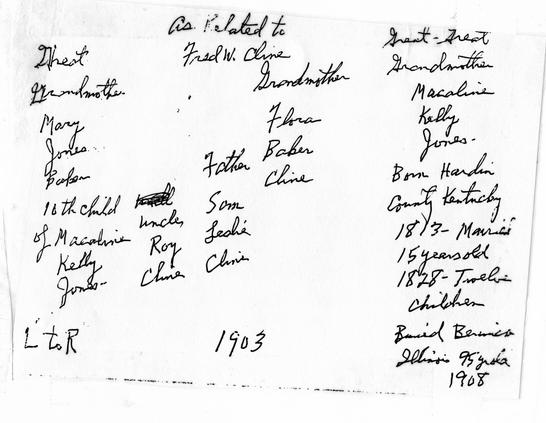 as Related to
Fred W. Cline
Great
Grandmother
Mary
Jones
Baker
10th child
of Macaline
Kelly
Jones-
Uncle
Roy
Cline
Father
Sam
Leslie
Cline
Grandmother
Flora
Baker
Cline
Great-Great
Grandmother
Macaline
Kelly
Jones-
Born Hardin
County Kentucky
1813- Married
15 years old
1828- Twelve
children
Buried
Illinois 95 yrs
1908
L to R
1903